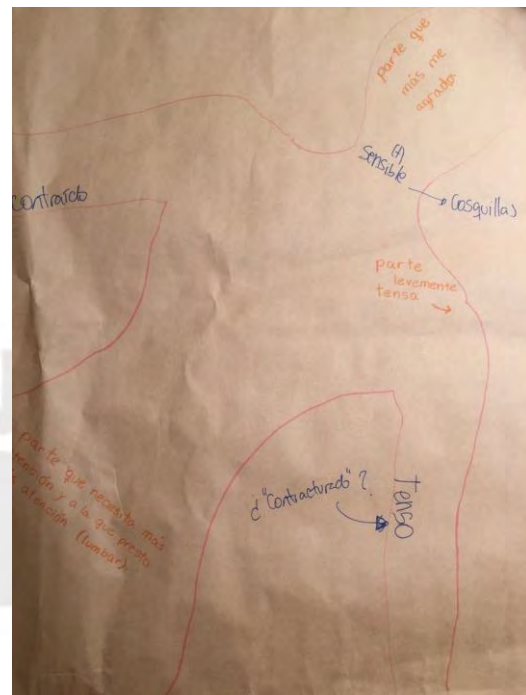 parte que
más me
agrada
(+)
Sensible
Cosquillas
contraído
parte
levemente
tensa
parte que necesita más
atención y a la que presto
atención
(lumbar)
¿"Contracturado"?
Tenso